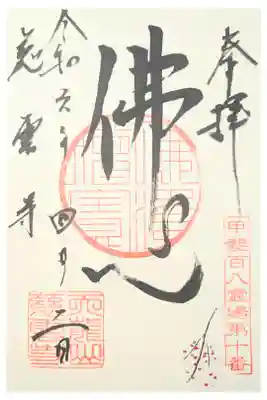 奉拝
甲斐百八霊場第十番
佛心
佛法僧寶
令和六年四月二日
慈雲寺